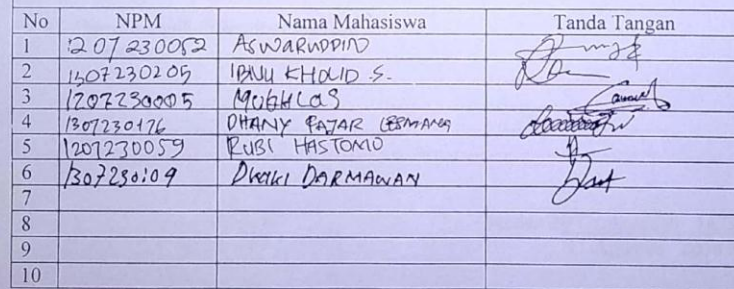 No NPM Nama Mahasiswa Tanda Tangan
1 1207230052 ASWARUDDIN
2 1307230205 IBNU KHOLID S.
3 1207230005 MUKHLAS
4 1307230176 DHANY FAJAR LESMANA
5 1207230059 RUBI HASTOMO
6 1307230109 DARMAWAN
7
8
9
10